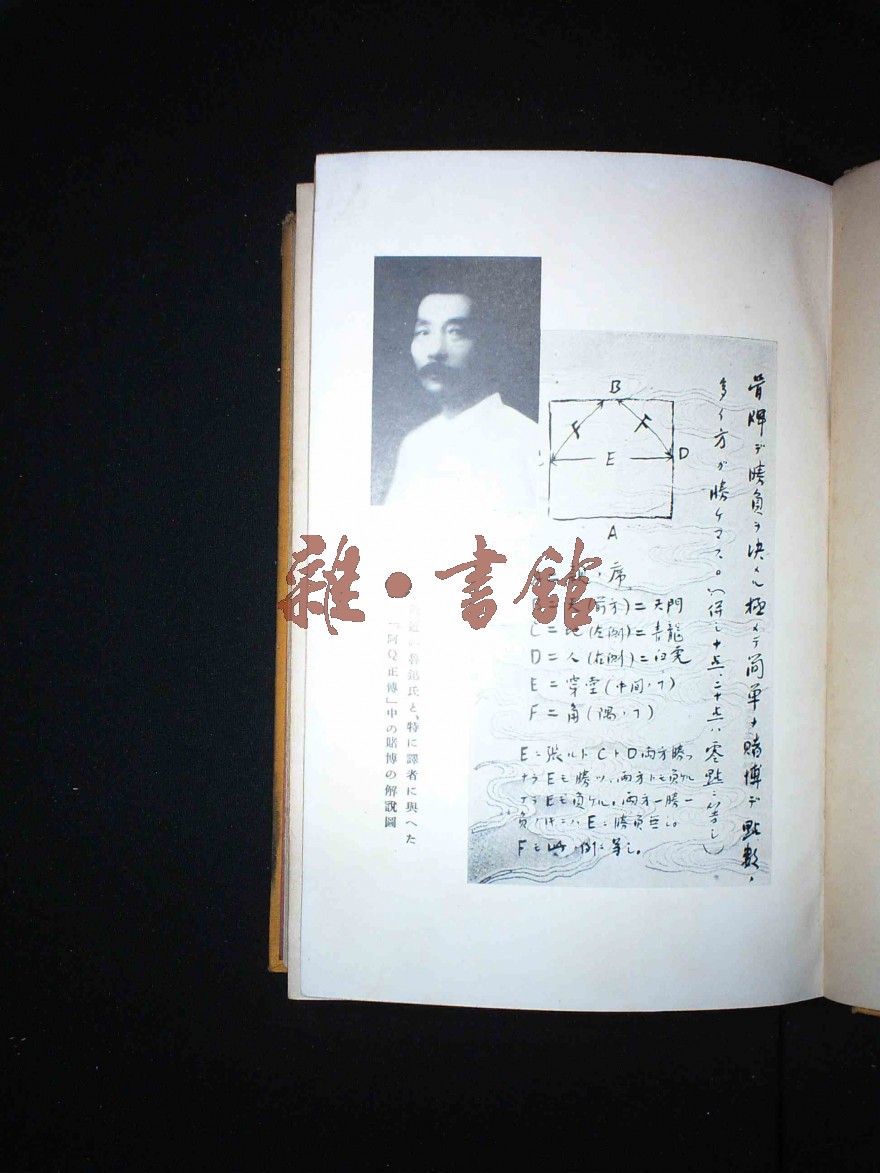 骨牌デ勝負ヲ決スル極メテ簡單ナ賭博デ點數ノ
多イ方ガ勝ケマス。(併シ十点、二十点ハ零點ニ等シ)
B
F F
E D
A
席
B=天(前方)=天門
C=地(左側)=青龍
D=人(右側)=白虎
E=穿堂(中间ノ丁)
F=角(隅ノ丁)
E=張ルトCトD両方勝ツ
ナラEモ勝ツ、両方トモ負ケル
ナラEモ負ケル。両方一勝一
負ノ時ニハE=勝負無シ。
Fモ此ノ例ニ等シ。
の魯迅氏と、特に譯者に與へた
「阿Q正傳」中の賭博の解説圖
雜·書館